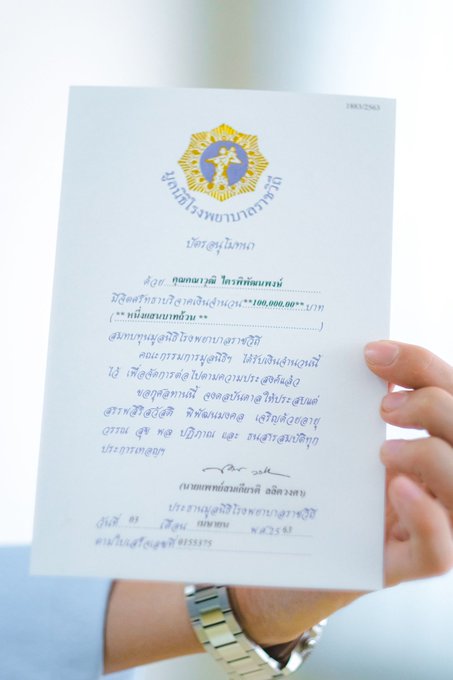 1883/2563
มูลนิธิโรงพยาบาลราชวิถี
บัตรอนุโมทนา
ด้วย คุณคณาวุฒิ ไตรพิพัฒนพงษ์
มีจิตศรัทธาบริจาคเงินจำนวน **100,000.00** บาท
(** หนึ่งแสนบาทถ้วน ** )
สมทบทุนมูลนิธิโรงพยาบาลราชวิถี
คณะกรรมการมูลนิธิฯ ได้รับเงินจำนวนนี้
ไว้ เพื่อจัดการต่อไปตามความประสงค์แล้ว
ขอกุศลทานนี้ จงดลบันดาลให้ประสบแต่
สรรพสิริสวัสดิ์ พิพัฒนมงคล เจริญด้วยอายุ
วรรณ สุข พล ปฏิภาณ และ ธนสารสมบัติทุก
ประการเทอญฯ
(นายแพทย์สมเกียรติ ลลิตวงศา)
ประธานมูลนิธิโรงพยาบาลราชวิถี
วันที่ 03 เดือน เมษายน พ.ศ.25 63
ตามใบเสร็จเลขที่ 0155375